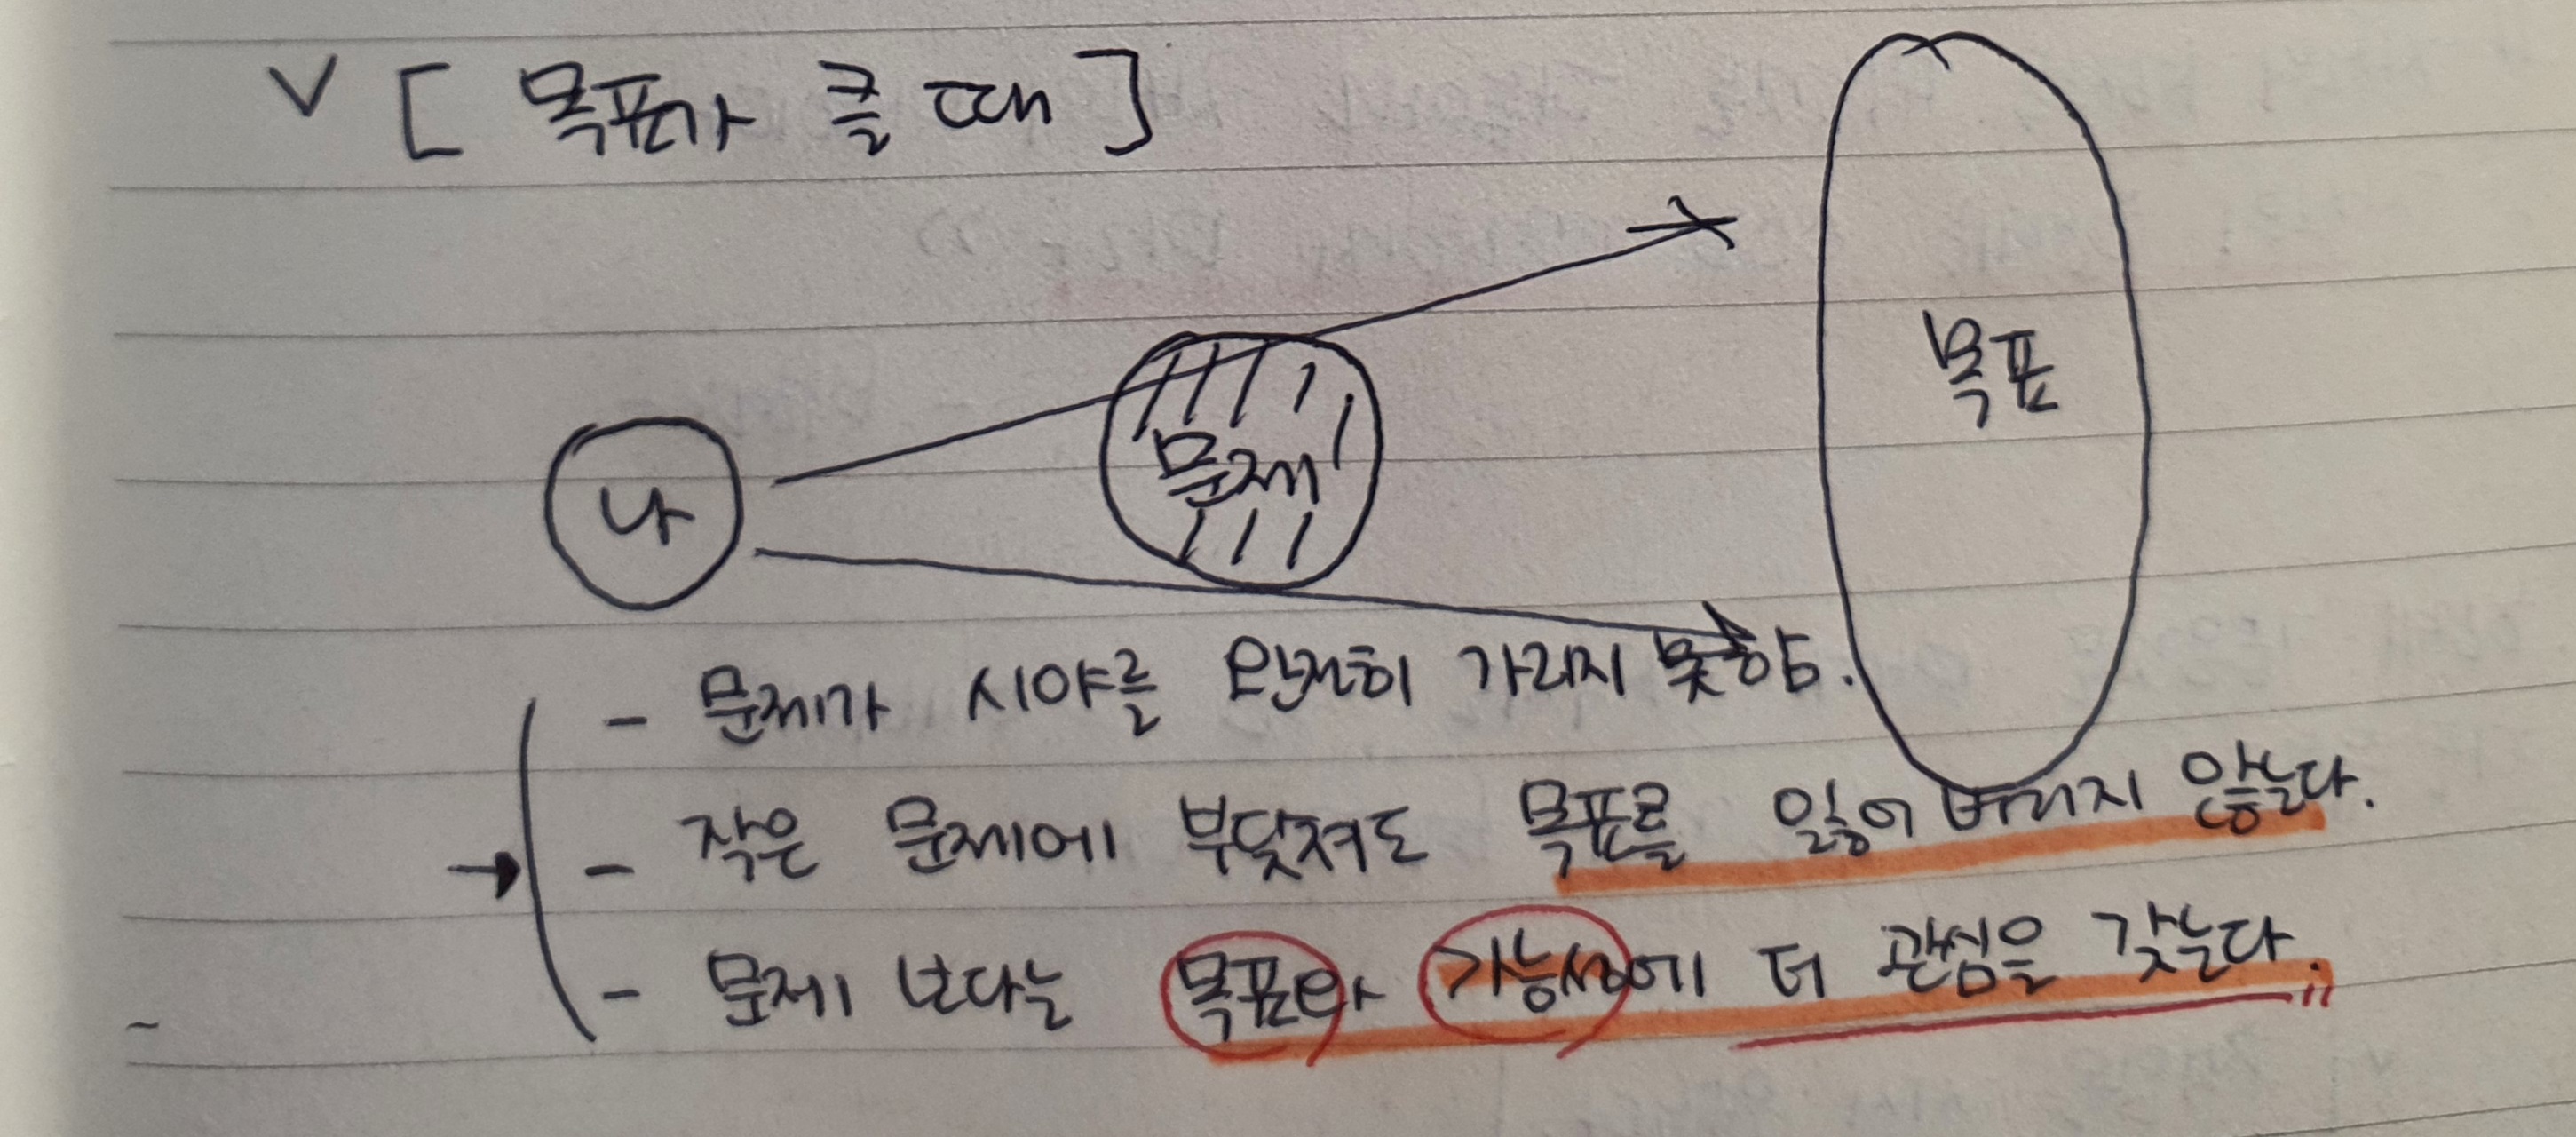 ∨ [ 목표가 클 때 ]
나
문제
목표
- 문제가 시야를 완전히 가리지 못함.
→ - 작은 문제에 부딪쳐도 목표를 잃어버리지 않는다.
- 문제 보다는 목표와 가능성에 더 관심을 갖는다.